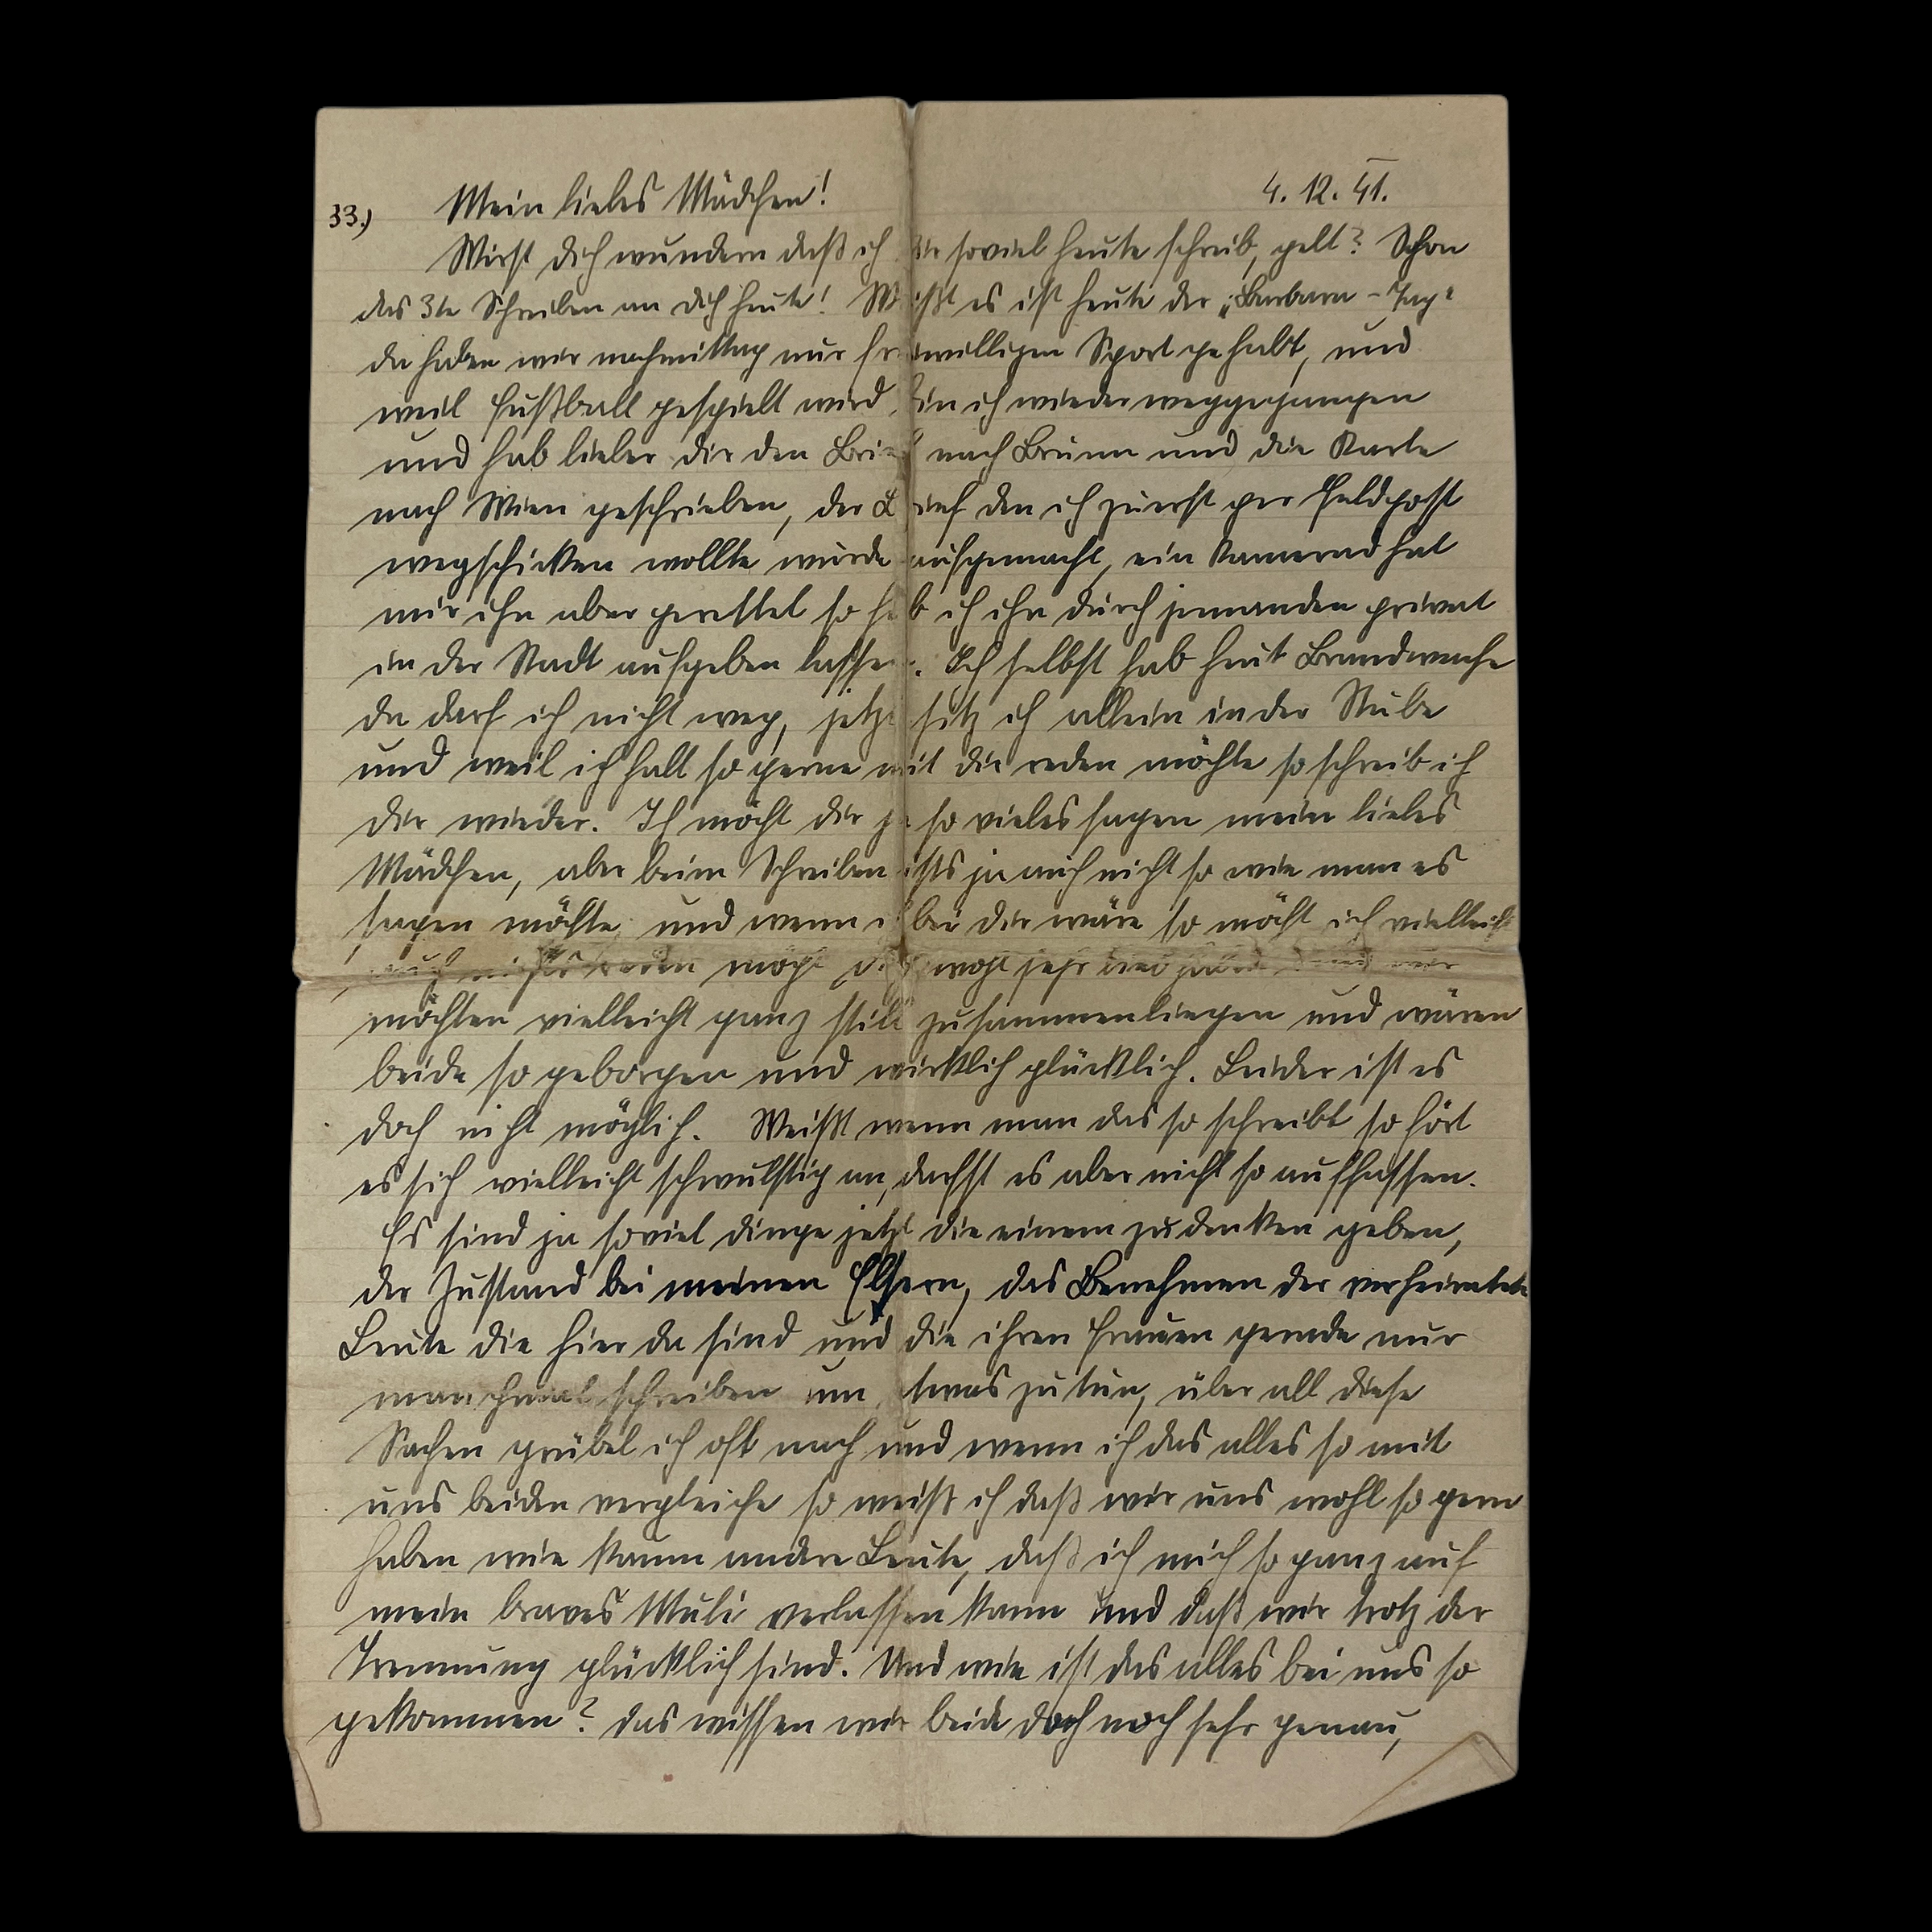 4. 12. 41.
33.) Mein liebes Mädchen!
Wirst dich wundern daß ich dir soviel heute schreib, gelt? Schon
das 3te Schreiben an dich heute! Weißt es ist heute der „Barbara-Tag"
da haben wir nachmittag nur freiwilligen Sport gehabt, und
weil Fußball gespielt wird, bin ich wieder weggegangen
und hab lieber dir den Brief nach Brünn und die Karte
nach Wien geschrieben, der Brief den ich zuerst per Feldpost
wegschicken wollte wurde aufgemacht, ein Kamerad hat
mir ihn aber gerettet so hab ich ihn durch jemanden privat
in der Stadt aufgeben lassen. Ich selbst hab heut Brandwache
da darf ich nicht weg, jetzt sitz ich allein in der Stube
und weil ich halt so gerne mit dir reden möchte so schreib ich
dir wieder. Ich möcht dir ja so vieles sagen mein liebes
Mädchen, aber beim Schreiben ists ja auch nicht so wie man es
sagen möchte und wenn ich bei dir wäre so möcht ich vielleicht
auch nichts reden möcht dich wohl sehr lieb haben und wir
möchten vielleicht ganz still zusammenliegen und wären
beide so geborgen und wirklich glücklich. Leider ist es
doch nicht möglich. Weißt wenn man das so schreibt so hört
es sich vielleicht schwulstig an, darfst es aber nicht so auffassen.
Es sind ja soviel dinge jetzt die einem zu denken geben,
der Zustand bei meinen Eltern, das Benehmen der verheirateten
Leute die hier da sind und die ihren Frauen gerade nur
manchmal schreiben um etwas zu tun, über all diese
Sachen grübel ich oft nach und wenn ich das alles so mit
uns beiden vergleiche so weiß ich daß wir uns wohl so gern
haben wie kaum andere Leute, daß ich mich so ganz auf
mein braves Muli verlassen kann und daß wir trotz der
Trennung glücklich sind. Und wie ist das alles bei uns so
gekommen? das wissen wir beide doch noch sehr genau,